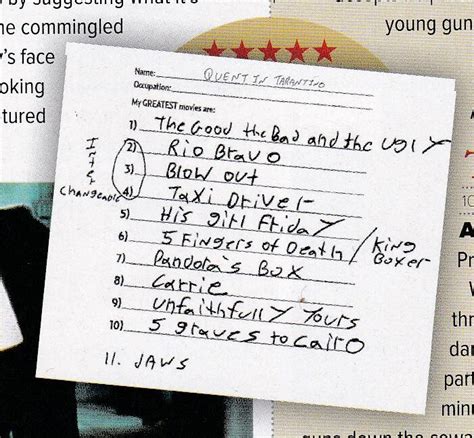 by suggesting what it's
ne commingled
young gun
's face
oking
tured
Name: QUENTIN TARANTINO
Occupation:
My GREATEST movies are:
1) The Good the Bad and the UGLY
2) Rio Bravo
3) Blow out
4) Taxi Driver
Inter
Changeable
5) His girl Friday
6) 5 Fingers of Death / King Boxer
7) Pandora's Box
8) Carrie
9) unfaithfully Yours
10) 5 graves to Cairo
11. JAWS
10
A
Pr
W
thr
dar
part
min